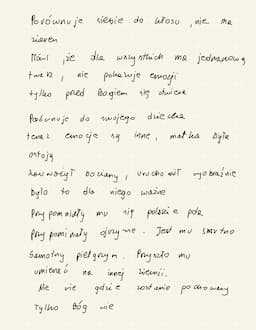 Porównuje siebie do kłosu, nie ma
ziaren
Mówi, że dla wszystkich ma jednakową
twarz, nie pokazuje emocji
tylko przed Bogiem się otwiera
Porównuje do swojego dziecka
teraz emocje są inne, matka była
ostoją
zauważył bociany, uruchomił wyobraźnie
było to dla niego ważne
Przypomniały mu się polskie pola
Przypominały ojczyznę. Jest mu smutno
Samotny pielgrzym. Przyszło mu
umierać na innej ziemii.
Nie wie gdzie zostanie pochowany
Tylko Bóg wie